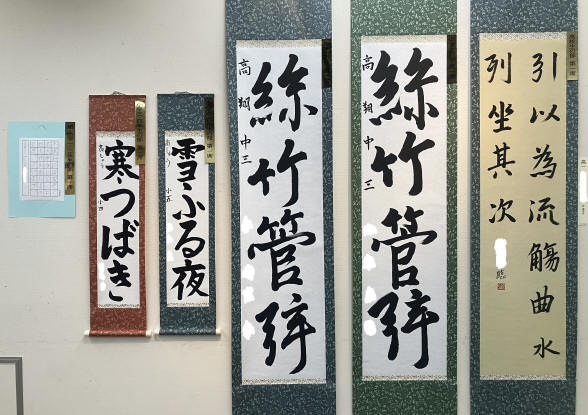 引以為流觴曲水
列坐其次
絲竹管弦
中三
絲竹管弦
中三
雪ふる夜
寒つばき